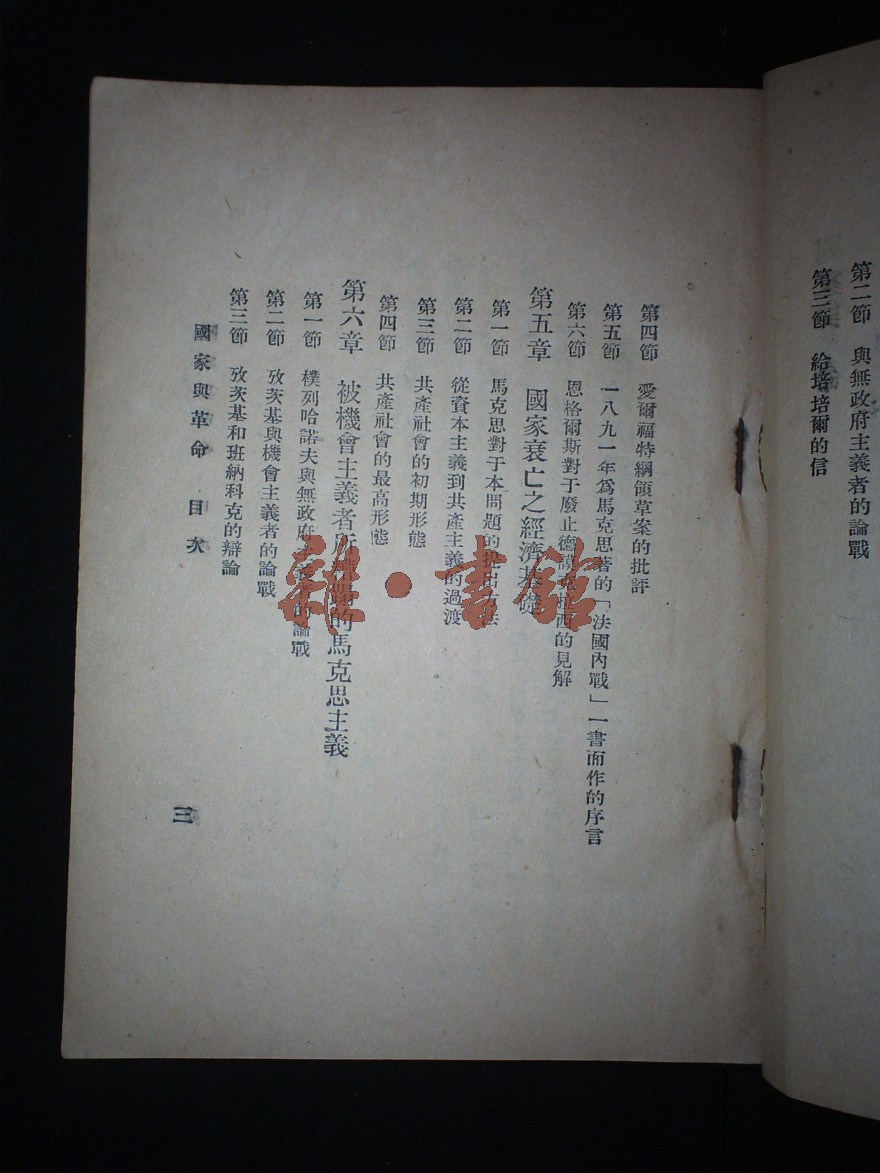 第二節 與無政府主義者的論戰
第三節 給培培爾的信
第四節 愛爾福特綱領草案的批評
第五節 一八九一年爲馬克思著的「法國內戰」一書而作的序言
第六節 恩格爾斯對于廢止德謨克拉西的見解
第五章 國家衰亡之經濟基礎
第一節 馬克思對于本問題的提出方法
第二節 從資本主義到共產主義的過渡
第三節 共產社會的初期形態
第四節 共產社會的最高形態
第六章 被機會主義者所 的馬克思主義
第一節 樸列哈諾夫與無政府主義者的論戰
第二節 攷茨基與機會主義者的論戰
第三節 攷茨基和班納科克的辯論
國家與革命 目次
三
雜·書館